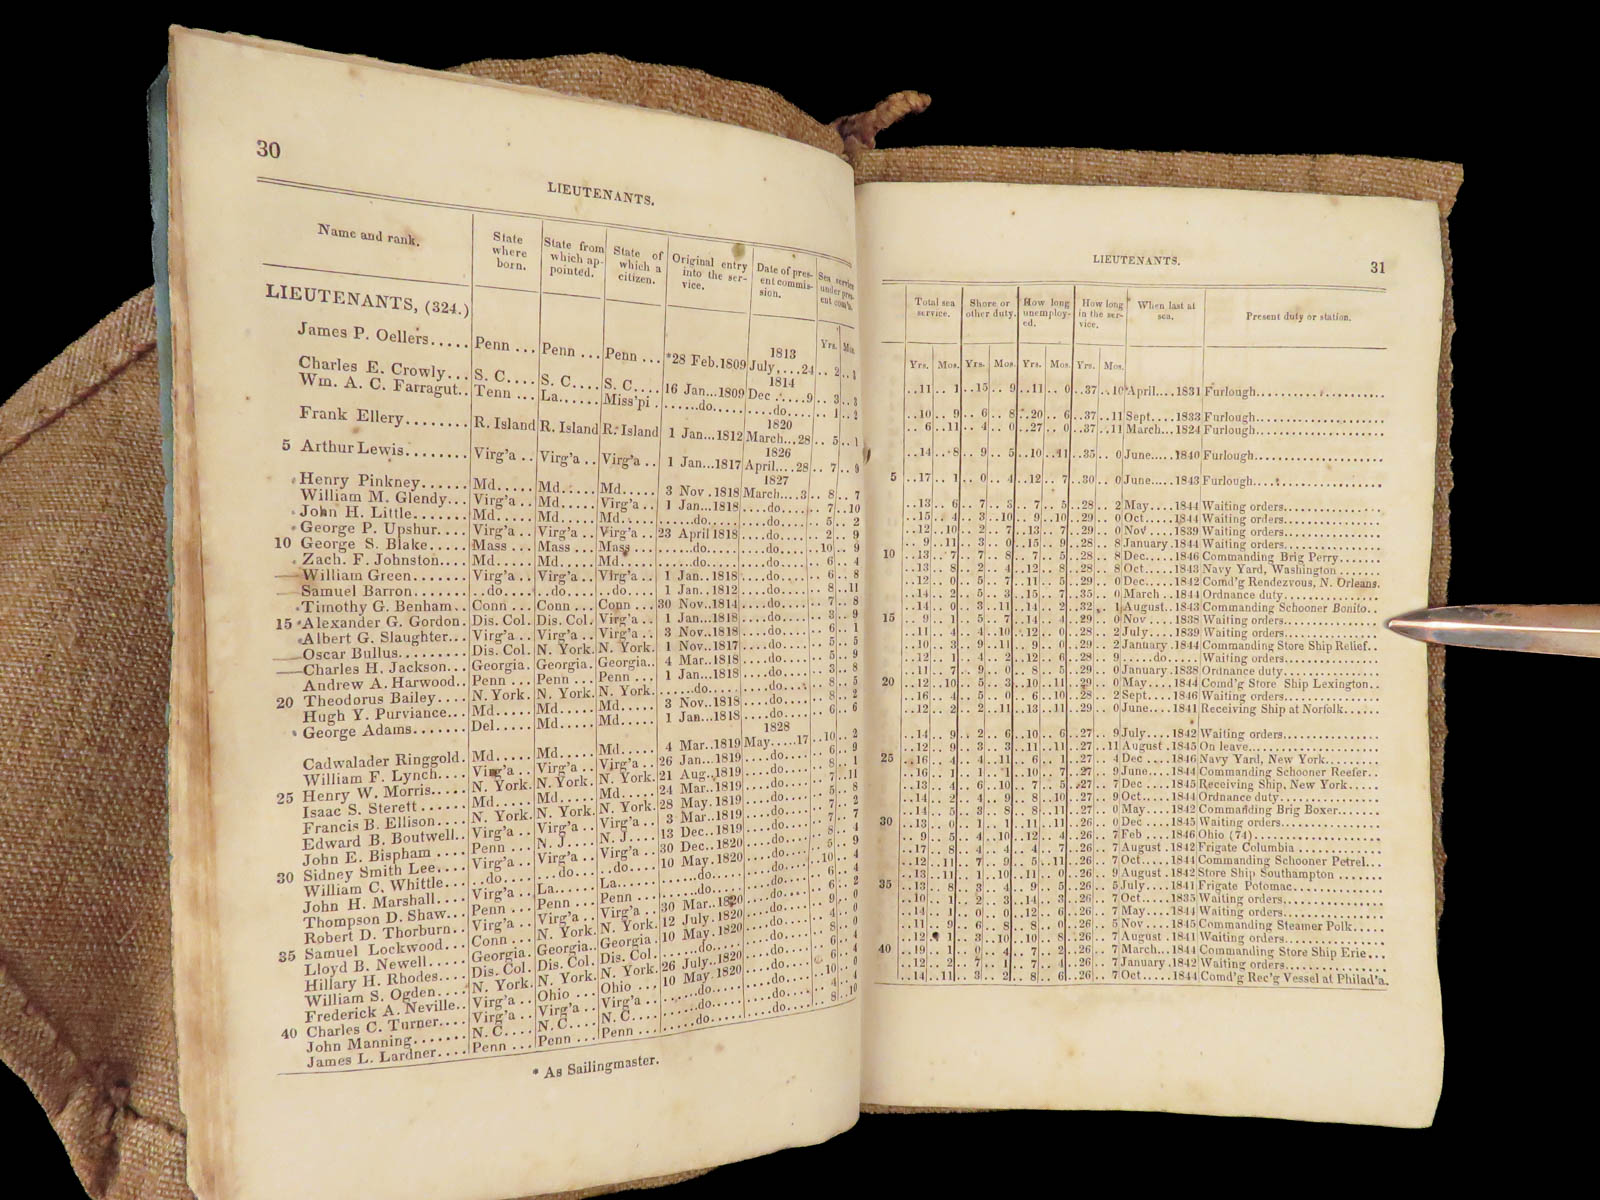 30
LIEUTENANTS.
Name and rank.
State where born.
State from which appointed.
State of which a citizen.
Original entry into the service.
Date of present commission.
Sea service under present com'n.
LIEUTENANTS, (324.)
Yrs. Mos.
1813
James P. Oellers..... Penn ... Penn ... Penn ... *28 Feb.1809 July,...24 .. 2 .. 1
1814
Charles E. Crowly... S. C.... S. C.... S. C.... 16 Jan...1809 Dec .....9 .. 3 .. 3
Wm. A. C. Farragut.. Tenn ... La...... Miss'pi . ......do... ....do.... .. 1 .. 2
1820
Frank Ellery........ R. Island R. Island R. Island 1 Jan...1812 March...28 .. 5 .. 1
1826
5 Arthur Lewis........ Virg'a .. Virg'a .. Virg'a .. 1 Jan...1817 April....28 .. 7 .. 9
1827
Henry Pinkney...... Md..... Md..... Md..... 3 Nov .1818 March....3 .. 8 .. 7
William M. Glendy... Virg'a .. Md..... Virg'a .. 1 Jan...1818 ....do.... .. 7 ..10
John H. Little....... Md..... Md..... Md..... ......do... ....do.... .. 5 .. 2
George P. Upshur.... Virg'a .. Virg'a .. Virg'a .. 23 April 1818 ....do.... .. 2 .. 9
10 George S. Blake..... Mass ... Mass ... Mass ... ......do... ....do.... ..10 .. 9
Zach. F. Johnston.... Md..... Md..... Md..... ......do... ....do.... .. 6 .. 4
William Green....... Virg'a .. Virg'a .. Virg'a .. 1 Jan..1818 ....do.... .. 6 .. 8
Samuel Barron....... ..do.... ..do.... ..do.... 1 Jan..1812 ....do.... .. 8 ..11
Timothy G. Benham.. Conn ... Conn ... Conn ... 30 Nov..1814 ....do.... .. 7 .. 8
15 Alexander G. Gordon. Dis. Col. Dis. Col. Virg'a .. 1 Jan..1818 ....do.... .. 3 .. 9
Albert G. Slaughter... Virg'a .. Virg'a .. Virg'a .. 3 Nov..1818 ....do.... .. 6 .. 1
Oscar Bullus......... Dis. Col. N. York. N. York. 1 Nov..1817 ....do.... .. 5 .. 5
Charles H. Jackson... Georgia. Georgia. Georgia.. 4 Mar..1818 ....do.... .. 5 .. 9
Andrew A. Harwood.. Penn ... Penn ... Penn ... 1 Jan..1818 ....do.... .. 3 .. 8
20 Theodorus Bailey.... N. York. N. York. N. York. ......do... ....do.... .. 8 .. 5
Hugh Y. Purviance... Md..... Md..... Md..... 3 Nov..1818 ....do.... .. 8 .. 2
George Adams....... Del .... Md..... Md..... 1 Jan...1818 ....do.... .. 6 .. 6
1828
Cadwalader Ringgold. Md..... Md..... Md..... 4 Mar..1819 May.....17 ..10 .. 2
William F. Lynch.... Virg'a .. Virg'a .. Virg'a .. 26 Jan..1819 ....do.... .. 6 .. 9
25 Henry W. Morris..... N. York. N. York. N. York. 21 Aug..1819 ....do.... .. 8 .. 1
Isaac S. Sterett ...... Md..... Md..... Md..... 24 Mar..1819 ....do.... .. 7 ..11
Francis B. Ellison.... N. York. N. York. N. York. 28 May.1819 ....do.... .. 5 .. 8
Edward B. Boutwell.. Virg'a .. Virg'a .. Virg'a .. 3 Mar..1819 ....do.... .. 7 .. 2
John E. Bispham .... Penn ... N. J.... N. J.... 13 Dec..1819 ....do.... .. 7 .. 7
30 Sidney Smith Lee.... Virg'a .. Virg'a .. Virg'a .. 30 Dec..1820 ....do.... .. 8 .. 4
William C. Whittle... ..do.... ..do.... ..do.... 10 May.1820 ....do.... .. 5 .. 9
John H. Marshall.... Virg'a .. La...... La...... ......do... ....do.... ..10 .. 4
Thompson D. Shaw.. Penn ... Penn ... Penn ... ......do... ....do.... .. 6 .. 4
Robert D. Thorburn.. Virg'a .. Virg'a .. Virg'a .. 30 Mar..1820 ....do.... .. 6 .. 2
35 Samuel Lockwood... Conn ... N. York. N. York. 12 July.1820 ....do.... .. 9 .. 0
Lloyd B. Newell..... Georgia. Georgia.. Georgia. 10 May.1820 ....do.... .. 4 .. 0
Hillary H. Rhodes.... Dis. Col. Dis. Col. Dis. Col. ......do... ....do.... .. 8 .. 0
William S. Ogden.... N. York. N. York. N. York. 26 July..1820 ....do.... .. 6 .. 4
Frederick A. Neville.. Virg'a .. Ohio ... Ohio ... 10 May.1820 ....do.... .. 6 .. 0
40 Charles C. Turner.... Virg'a .. Virg'a .. Virg'a .. ......do... ....do.... ..10 .. 4
John Manning....... N. C.... N. C.... N. C.... ......do... ....do.... .. 4 .. 0
James L. Lardner.... Penn ... Penn ... Penn ... ......do... ....do.... .. 8 ..10
* As Sailingmaster.
LIEUTENANTS.
31
Total sea service.
Shore or other duty.
How long unemployed.
How long in the service.
When last at sea.
Present duty or station.
Yrs. Mos. Yrs. Mos. Yrs. Mos. Yrs. Mos.
..11 .. 1 ..15 .. 9 ..11 .. 0 ..37 ..10 April....1831 Furlough
..10 .. 9 .. 6 .. 8 ..20 .. 6 ..37 ..11 Sept....1833 Furlough
.. 6 ..11 .. 4 .. 0 ..27 .. 0 ..37 ..11 March...1824 Furlough
..14 .. 8 .. 9 .. 5 ..10 ..11 ..35 .. 0 June.....1840 Furlough
5 ..17 .. 1 .. 0 .. 4 ..12 .. 7 ..30 .. 0 June.....1843 Furlough
..13 .. 6 .. 7 .. 3 .. 7 .. 5 ..28 .. 2 May....1844 Waiting orders
..15 .. 4 .. 3 ..10 .. 9 ..10 ..29 .. 0 Oct.....1844 Waiting orders
..12 ..10 .. 2 .. 7 ..13 .. 7 ..29 .. 0 Nov....1839 Waiting orders
.. 9 ..11 .. 3 .. 0 ..15 .. 9 ..28 .. 8 January.1844 Waiting orders
10 ..13 .. 7 .. 7 .. 8 .. 7 .. 5 ..28 .. 8 Dec.....1846 Commanding Brig Perry
..13 .. 8 .. 2 .. 4 ..12 .. 8 ..28 .. 8 Oct.....1843 Navy Yard, Washington
..12 .. 0 .. 5 .. 7 ..11 .. 5 ..29 .. 0 Dec.....1842 Comd'g Rendezvous, N. Orleans.
..14 .. 2 .. 5 .. 3 ..15 .. 7 ..35 .. 0 March ..1844 Ordnance duty
..14 .. 0 .. 3 ..11 ..14 .. 2 ..32 .. 1 August..1843 Commanding Schooner Bonito..
15 .. 9 .. 1 .. 5 .. 7 ..14 .. 4 ..29 .. 0 Nov ....1838 Waiting orders
..11 .. 4 .. 4 ..10 ..12 .. 0 ..28 .. 2 July....1839 Waiting orders
..10 .. 3 .. 9 ..11 .. 9 .. 0 ..29 .. 2 January.1844 Commanding Store Ship Relief..
..12 .. 1 .. 4 .. 2 ..12 .. 6 ..28 .. 9 .....do..... Waiting orders
..11 .. 7 .. 9 .. 0 .. 8 .. 5 ..29 .. 0 January.1838 Ordnance duty
20 ..12 ..10 .. 5 .. 3 ..10 ..11 ..29 .. 0 May....1844 Comd'g Store Ship Lexington..
..16 .. 4 .. 5 .. 0 .. 6 ..10 ..28 .. 2 Sept....1846 Waiting orders
..12 .. 2 .. 2 ..11 ..13 ..11 ..29 .. 0 June....1841 Receiving Ship at Norfolk
..14 .. 9 .. 2 .. 6 ..10 .. 6 ..27 .. 9 July....1842 Waiting orders
..12 .. 9 .. 3 .. 3 ..11 ..11 ..27 ..11 August .1845 On leave
25 ..16 .. 4 .. 4 ..11 .. 6 .. 1 ..27 .. 4 Dec ....1846 Navy Yard, New York
..16 .. 1 .. 1 .. 1 ..10 .. 7 ..27 .. 9 June....1844 Commanding Schooner Reefer..
..13 .. 4 .. 6 ..10 .. 7 .. 5 ..27 .. 7 Dec ....1845 Receiving Ship, New York
..14 .. 2 .. 4 .. 9 .. 8 ..10 ..27 .. 9 Oct.....1844 Ordnance duty
..14 .. 5 .. 3 .. 8 .. 8 ..11 ..27 .. 0 May....1842 Commanding Brig Boxer
30 ..13 .. 0 .. 1 .. 1 ..11 ..11 ..26 .. 0 Dec ....1845 Waiting orders
.. 9 .. 5 .. 4 ..10 ..12 .. 4 ..26 .. 7 Feb ....1846 Ohio (74)
..17 .. 8 .. 4 .. 4 .. 4 .. 7 ..26 .. 7 August .1842 Frigate Columbia
..12 ..11 .. 7 .. 9 .. 5 ..11 ..26 .. 7 Oct.....1844 Commanding Schooner Petrel...
..13 ..11 .. 1 ..10 ..11 .. 0 ..26 .. 9 August .1842 Store Ship Southampton
35 ..13 .. 8 .. 3 .. 4 .. 9 .. 5 ..26 .. 5 July....1841 Frigate Potomac
..10 .. 1 .. 2 .. 3 ..14 .. 3 ..26 .. 7 Oct.....1835 Waiting orders
..14 .. 1 .. 0 .. 0 ..12 .. 6 ..26 .. 7 May....1844 Waiting orders
..11 .. 9 .. 6 .. 8 .. 8 .. 0 ..26 .. 5 Nov ....1845 Commanding Steamer Polk
..12 .. 1 .. 3 ..10 ..10 .. 8 ..26 .. 7 August .1841 Waiting orders
40 ..19 .. 1 .. 0 .. 4 .. 7 .. 2 ..26 .. 7 March...1844 Commanding Store Ship Erie...
..12 .. 2 .. 7 .. 1 .. 7 .. 4 ..26 .. 7 January.1842 Waiting orders
..14 ..11 .. 3 .. 2 .. 8 .. 6 ..26 .. 7 Oct.....1844 Comd'g Rec'g Vessel at Philad'a.